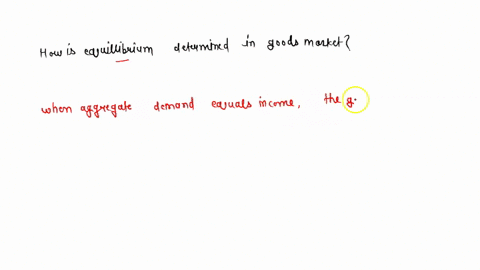 How is equillibrium determined in goods market?
when aggregate demand equals income, the g